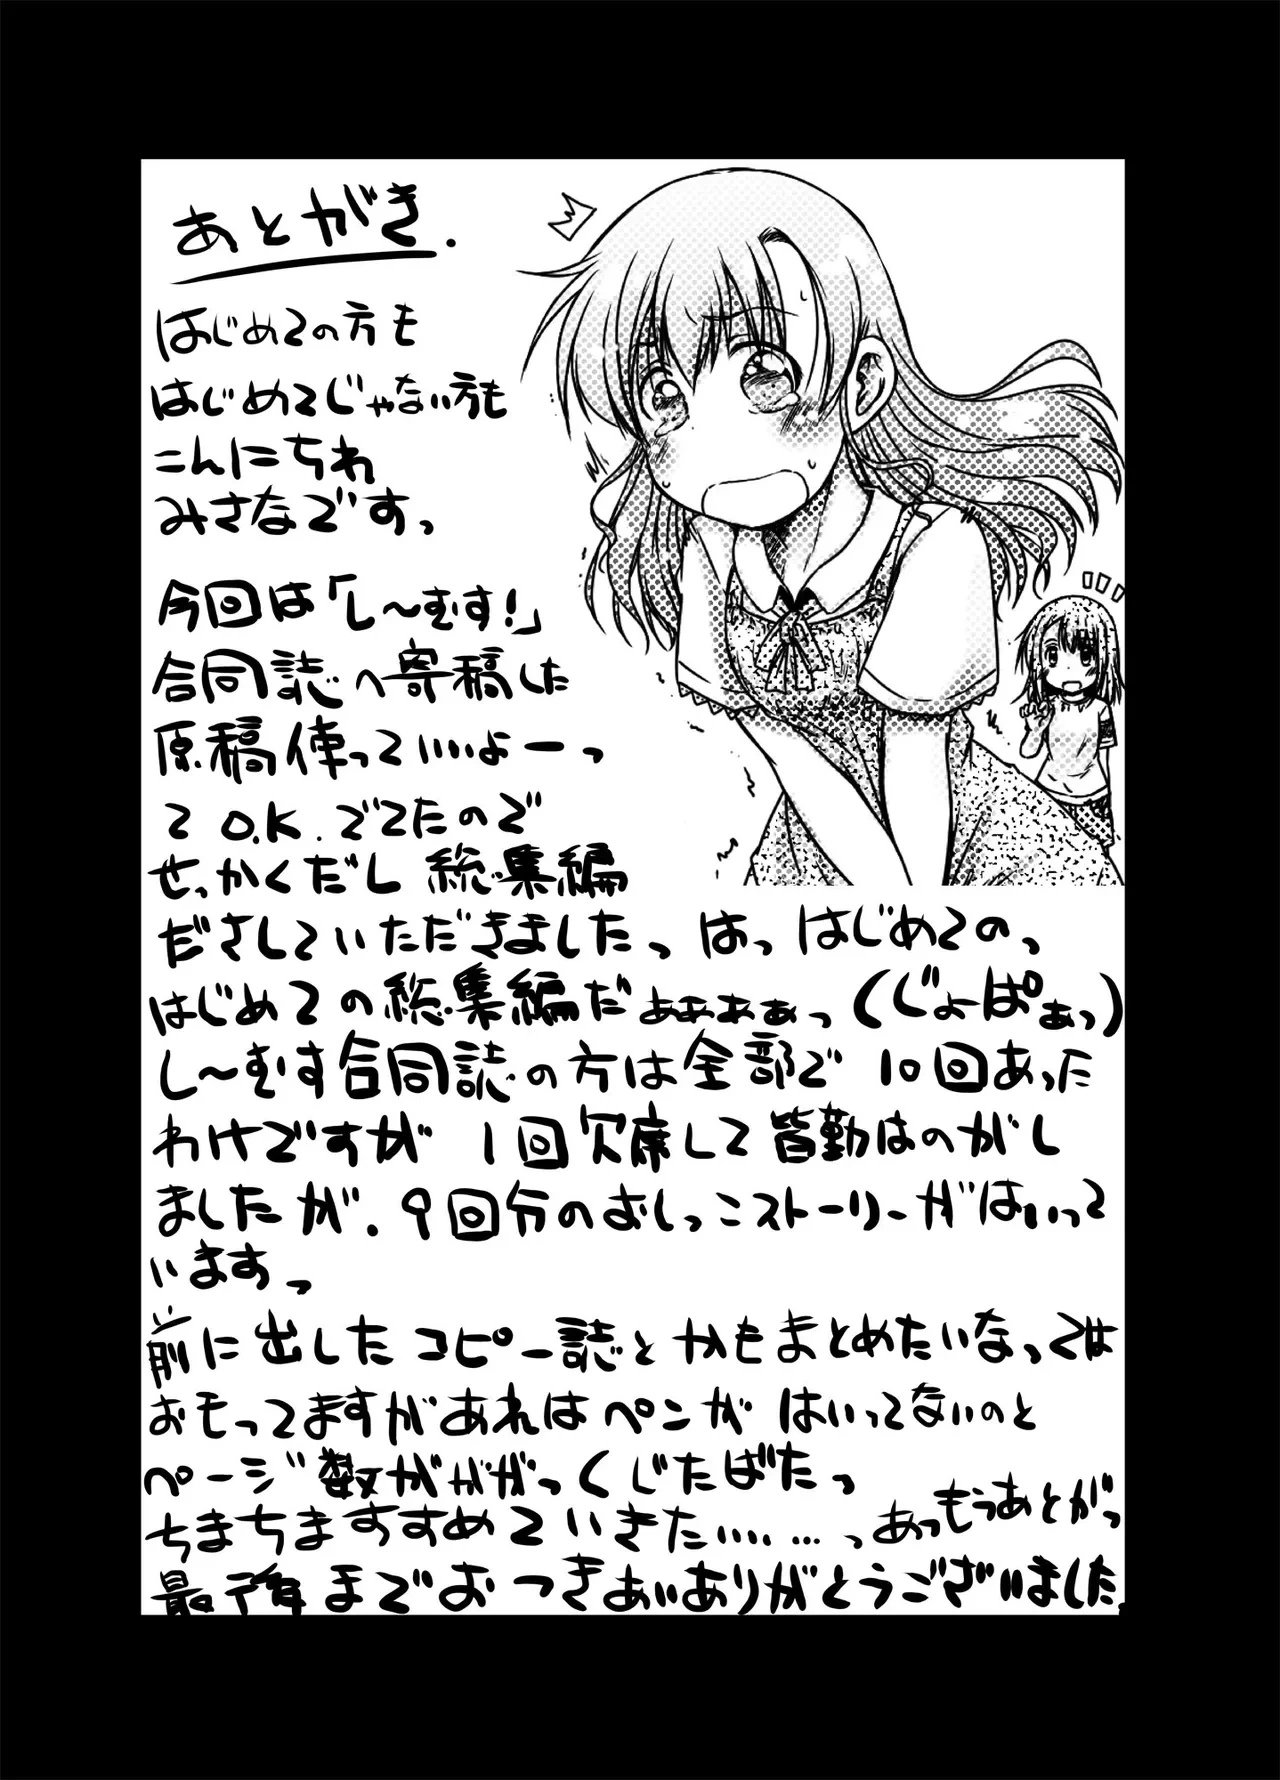 あとがき.
はじめての方も
はじめてじゃない方も
こんにちわ
みさなです。
今回は「し〜むす!」
合同誌へ寄稿した
原稿使っていいよーっ
て O.K. でてたので
せっかくだし 総集編
ださしていただきましたっ はっ はじめてのっ
はじめての総集編だぁぁぁぁぁっ (じょぱぁっ)
し〜むす合同誌の方は全部で 10回あった
わけですが 1回欠席して皆勤はのがし
ましたが. 9回分のおしっこストーリーがはいって
いますっ
前に出したコピー誌とかもまとめたいなっては
おもってますがあれはペンが はいってないのと
ページ数ががががっくじたばたっ
ちまちますすめていきた...... っ あっもうあとがっ
最後までおつきあいありがとうございました.